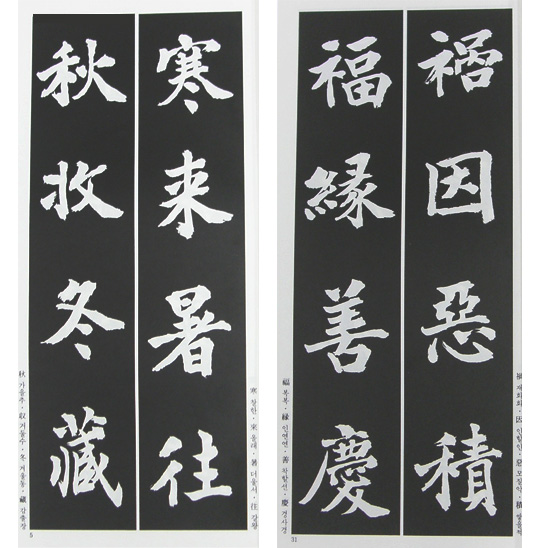 寒来暑往
秋收冬藏
寒 찰한·來 올래·暑 더울서·往 갈왕
秋 가을추·収 거둘수·冬 겨울동·藏 감출장
5
禍因惡積
福縁善慶
禍 재화화·因 인할인·惡 모질악·積 쌓을적
福 복복·緣 인연연·善 착할선·慶 경사경
31